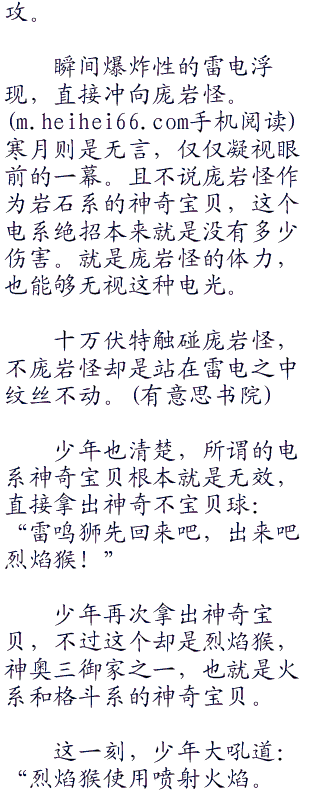 攻。
瞬间爆炸性的雷电浮
现，直接冲向庞岩怪。
(m.heihei66.com手机阅读)
寒月则是无言，仅仅凝视眼
前的一幕。且不说庞岩怪作
为岩石系的神奇宝贝，这个
电系绝招本来就是没有多少
伤害。就是庞岩怪的体力，
也能够无视这种电光。
十万伏特触碰庞岩怪，
不庞岩怪却是站在雷电之中
纹丝不动。(有意思书院)
少年也清楚，所谓的电
系神奇宝贝根本就是无效，
直接拿出神奇不宝贝球：
“雷鸣狮先回来吧，出来吧
烈焰猴！”
少年再次拿出神奇宝
贝，不过这个却是烈焰猴，
神奥三御家之一，也就是火
系和格斗系的神奇宝贝。
这一刻，少年大吼道：
“烈焰猴使用喷射火焰。